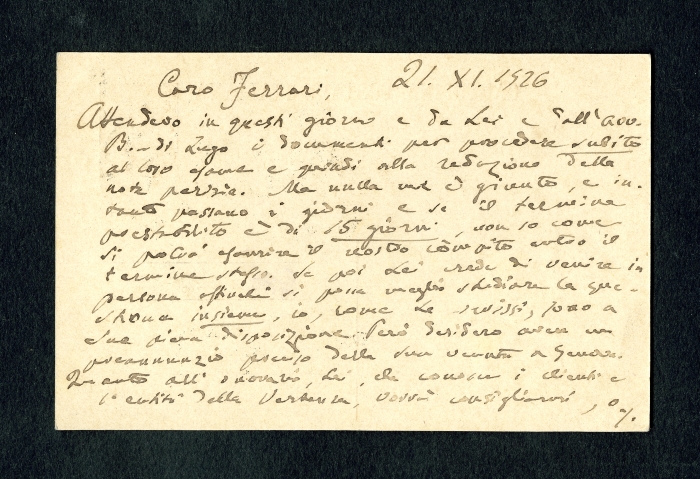 21. XI. 1926
Caro Ferrari,
Attendevo in questi giorni e da Lei e dall'Avv.
B... di Lugo i documenti per procedere subito
al loro esame e quindi alla redazione della
nota perizia. Ma nulla mi è giunto, e in-
tanto passano i giorni e se il termine
prestabilito è di 15 giorni, non so come
si potrà esaurire il nostro compito entro il
termine stesso. Se poi Lei crede di venire in
persona affinché si possa meglio studiare la que-
stione insieme, io, come Le scrissi, sono a
sua piena disposizione. Però desidero avere un
preannunzio preciso della sua venuta a Genova.
Quanto all'onorario, Lei, che conosce i clienti e
l'entità della vertenza, vorrà consigliarmi,